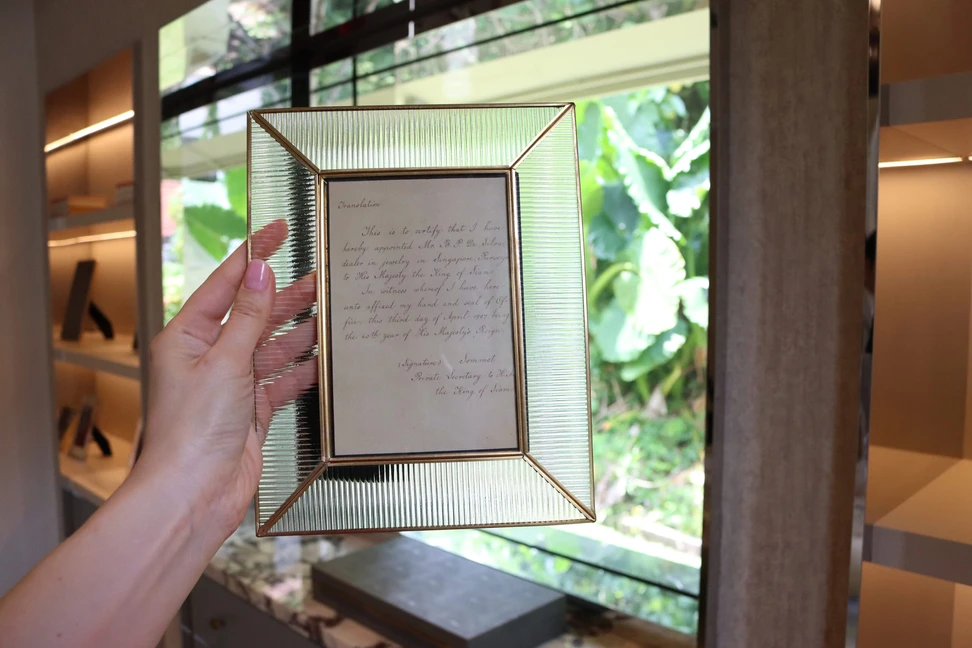 Translation
This is to certify that I have
hereby appointed Mr. B. P. De Silva,
dealer in jewelry in Singapore,
to His Majesty the King of Siam
In witness whereof I have here
unto affixed my hand and seal of Of
fice this third day of April 1907 being
the 40th year of His Majesty's Reign.
(Signature) Sommot
Private Secretary to His
the King of Siam